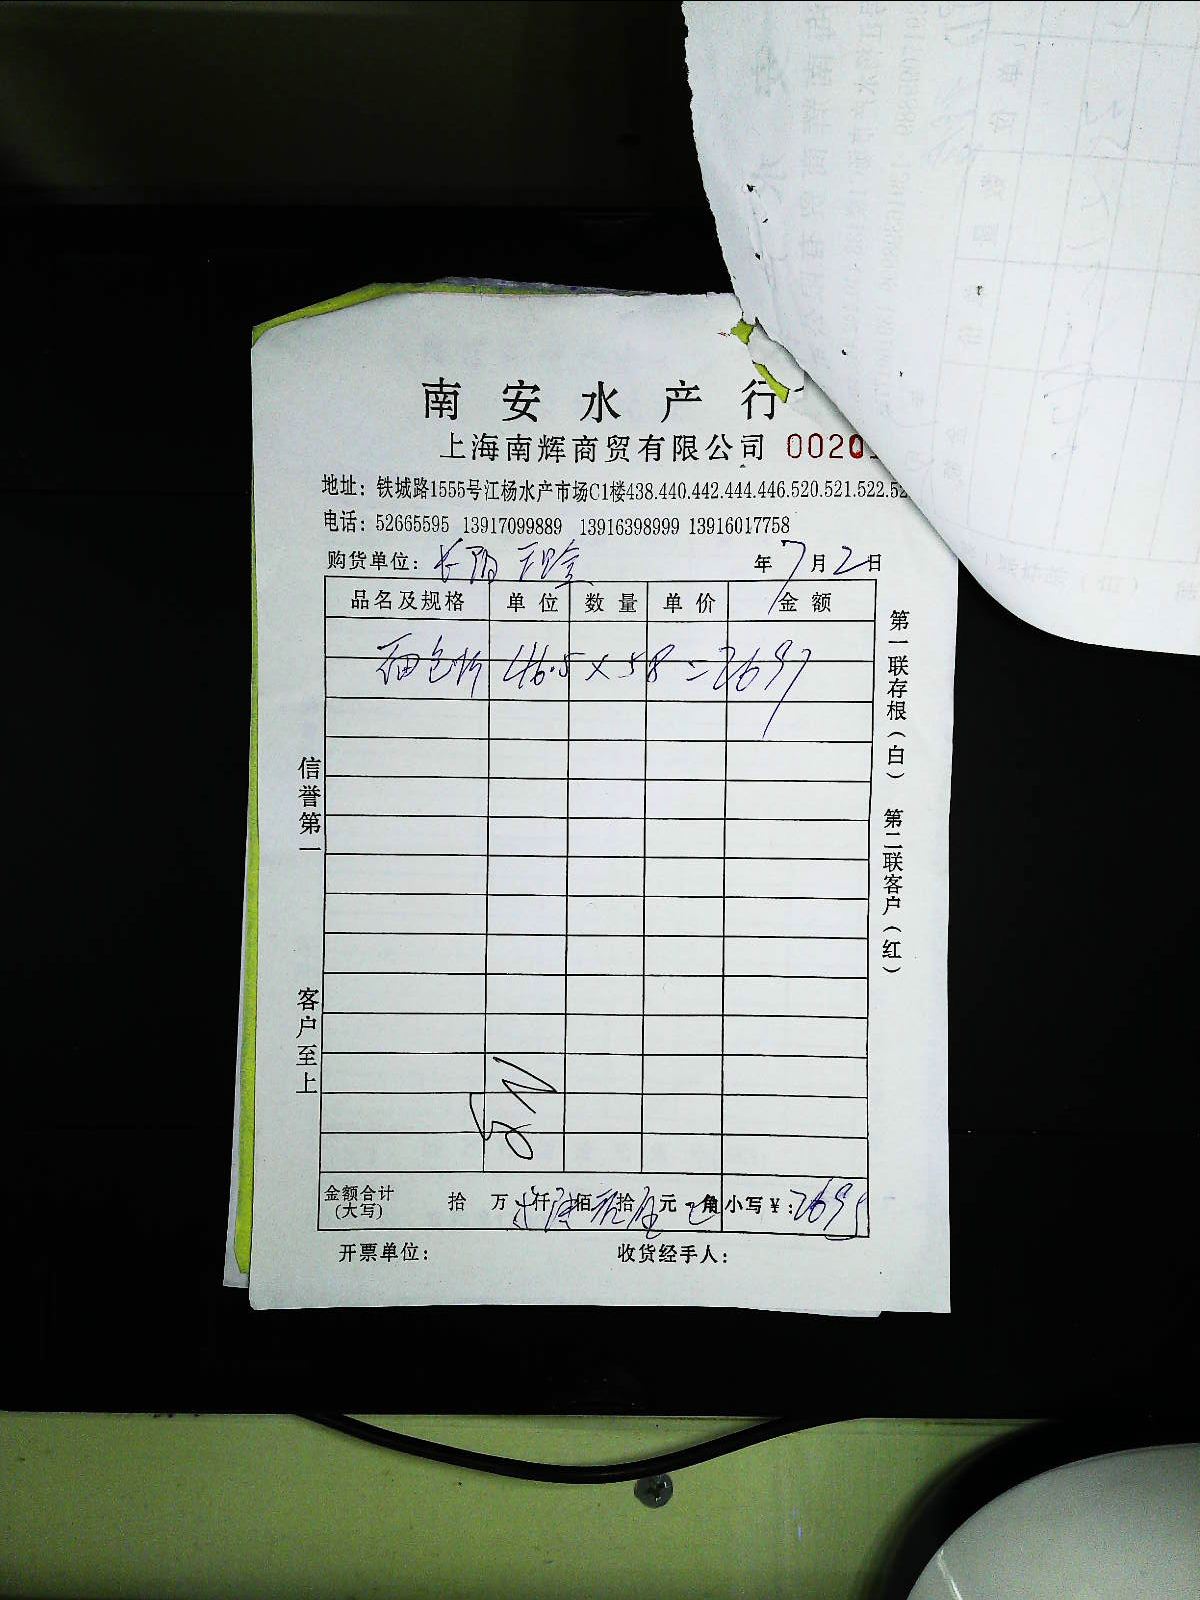 南安水产行
上海南辉商贸有限公司 00201
地址：铁城路1555号江杨水产市场C1楼438.440.442.444.446.520.521.522.52
电话：52665595 13917099889 13916398999 13916017758
购货单位：长阳 年7月2日
品名及规格 单位 数量 单价 金额
46.5×58=2697
信誉第一
客户至上
第一联存根（白）
第二联客户（红）
金额合计（大写） 拾 万 仟 佰 拾 元 角 小写￥：2695
开票单位：
收货经手人：